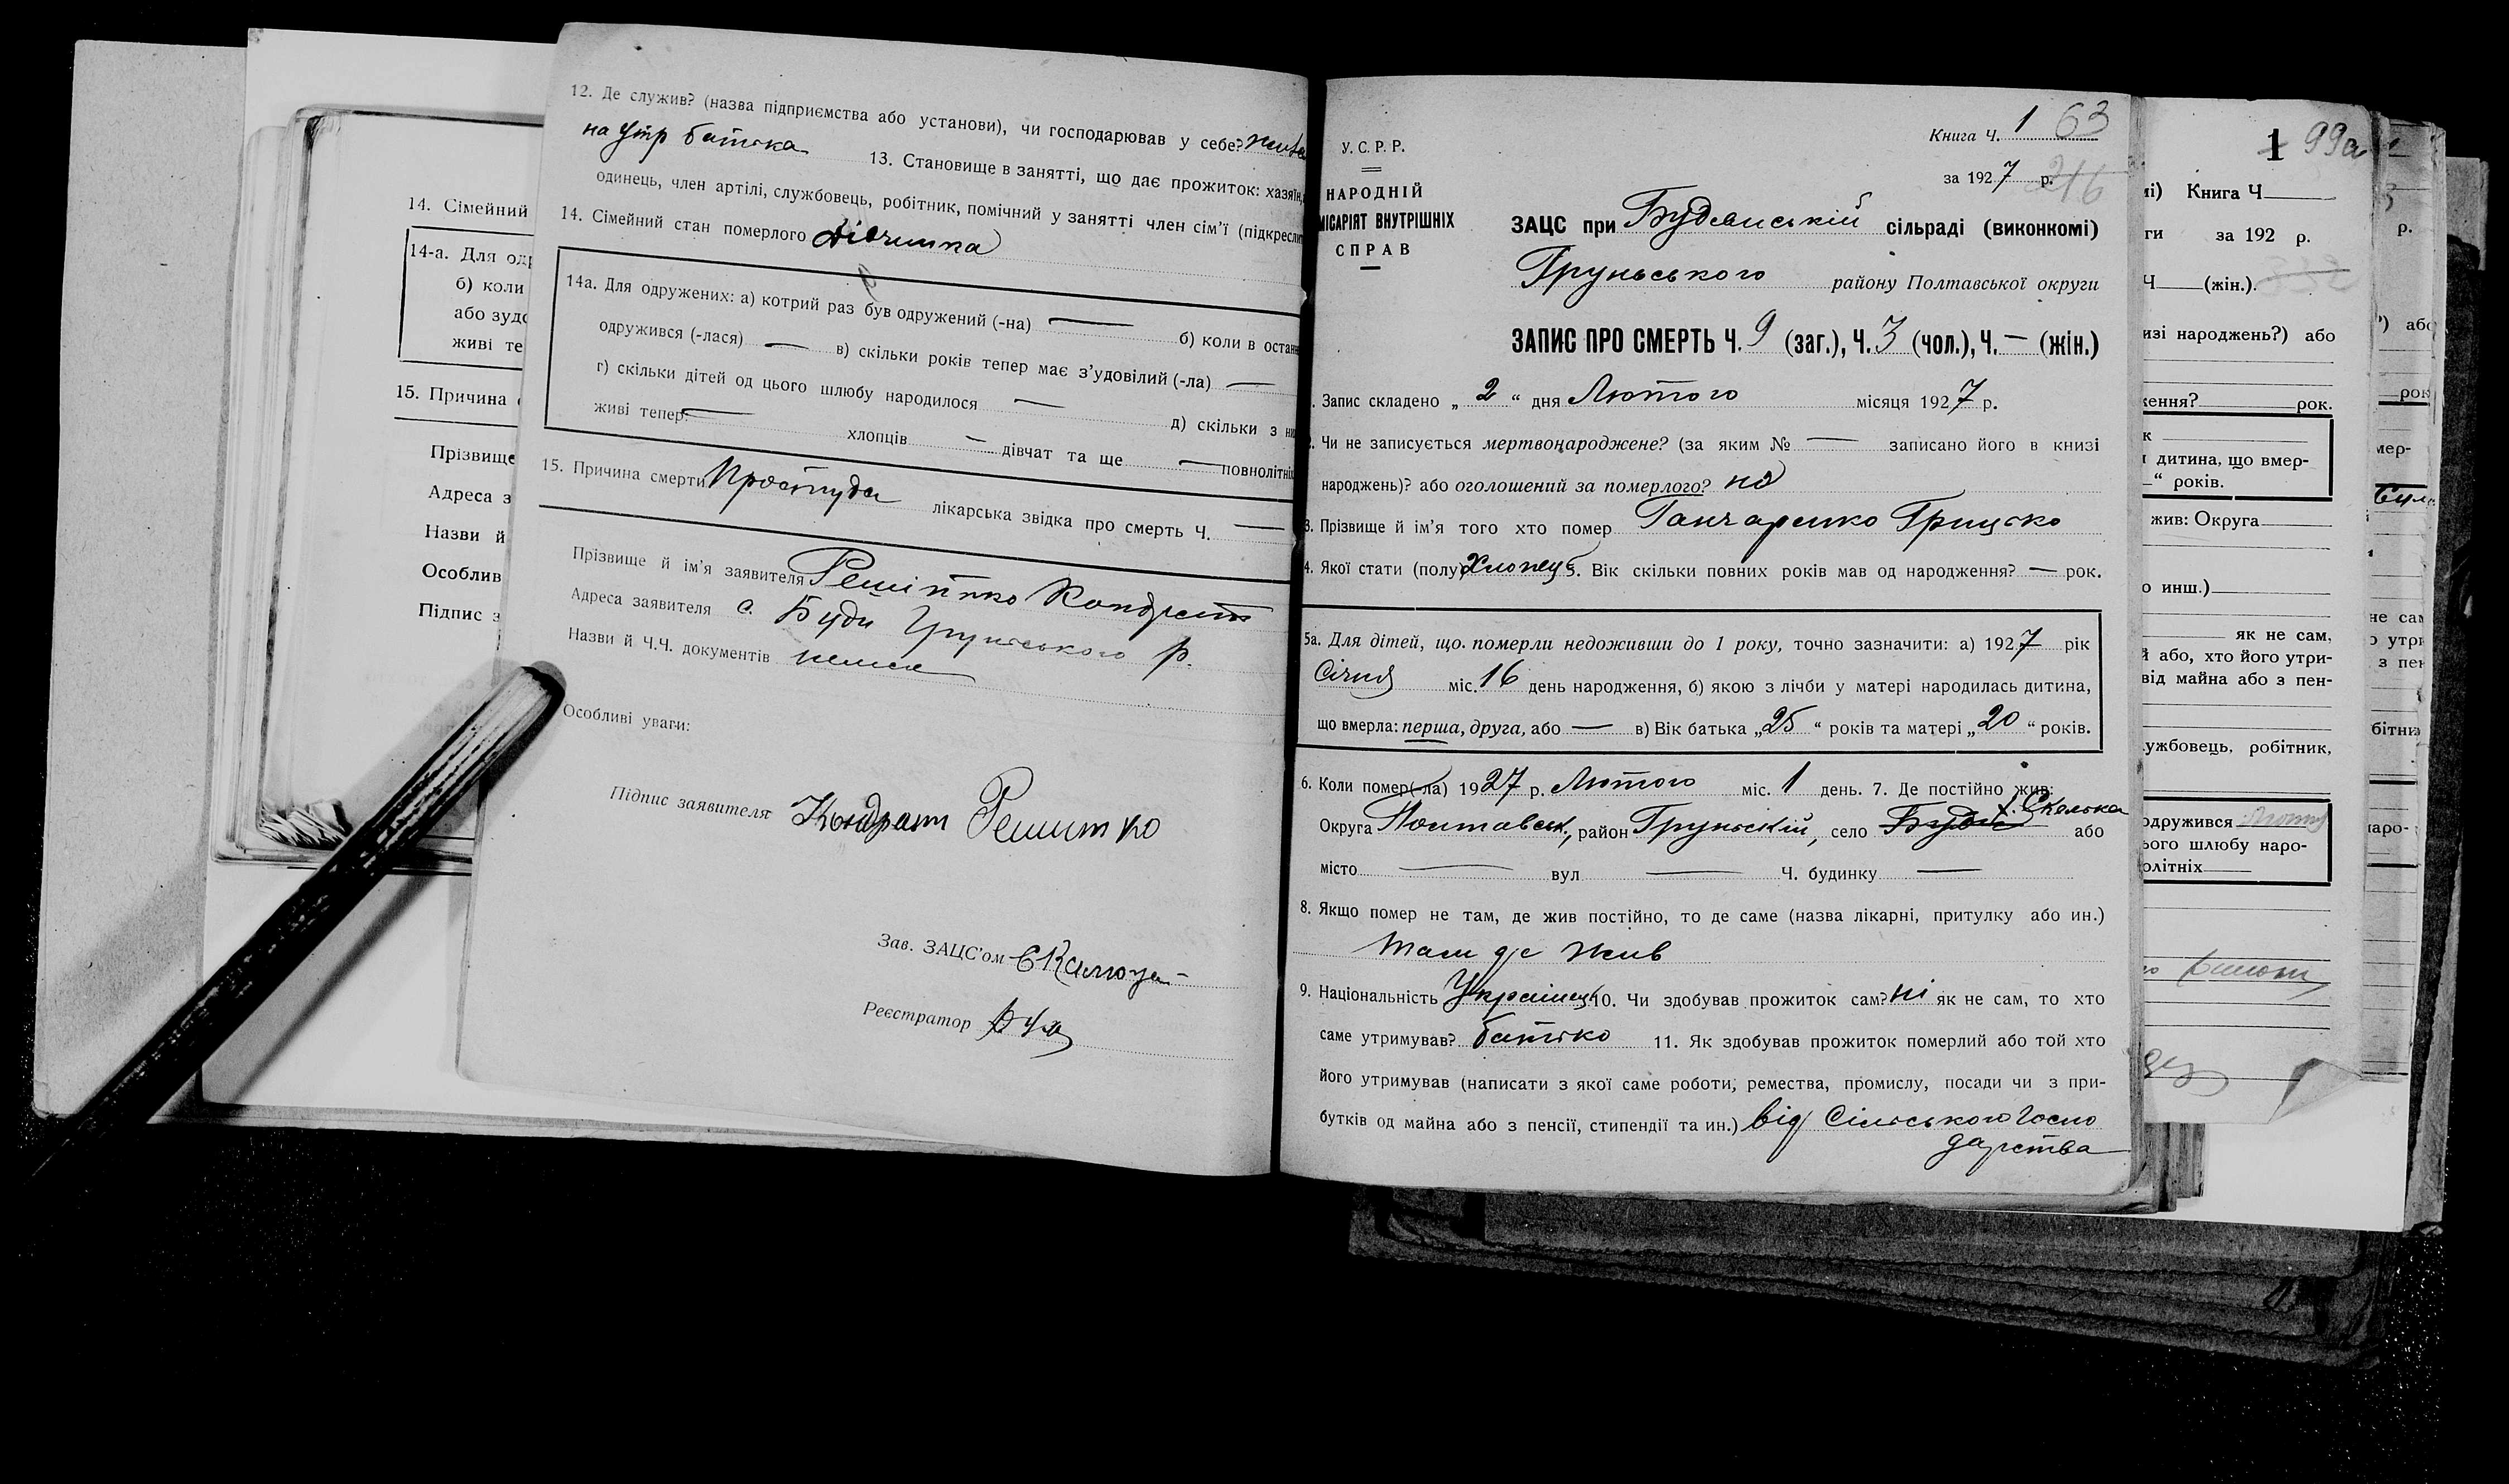 12. Де служив? (назва підприємства або установи), чи господарював у себе?
на утр батька 13. Становище в занятті, що дає прожиток: хазяїн,
одинець, член артілі, службовець, робітник, помічний у занятті член сім'ї (підкреслит
14. Сімейний стан померлого дівчинка
14а. Для одружених: а) котрий раз був одружений (-на) — б) коли в останн
одружився (-лася) — в) скільки років тепер має з'удовілий (-ла) —
г) скільки дітей од цього шлюбу народилося — д) скільки з ни
живі тепер: — хлопців — дівчат та ще — повнолітніх
15. Причина смерти Простуда лікарська звідка про смерть Ч. —
Прізвище й ім'я заявителя Решітко Кондрат
Адреса заявителя с. Буди Груньського р.
Назви й Ч.Ч. документів немає
Особливі уваги:
Підпис заявителя Кондрат Решитко
Зав. ЗАЦС'ом
Реєстратор
14. Сімейний
14-а. Для од
б) коли
або зудо
живі те
15. Причина
Прізвище
Адреса з
Назви й
Особлив
Підпис з
У.С.Р.Р.
НАРОДНІЙ
МІСАРІЯТ ВНУТРІШНІХ
СПРАВ
Книга Ч. 1 63
за 1927 р. 216
ЗАЦС при Будянській сільраді (виконкомі)
Груньського району Полтавської округи
ЗАПИС ПРО СМЕРТЬ Ч. 9 (заг.), Ч. 3 (чол.), Ч. — (жін.)
. Запис складено „ 2 “ дня Лютого місяця 1927 р.
2. Чи не записується мертвонароджене? (за яким № — записано його в книзі
народжень)? або оголошений за померлого? но
3. Прізвище й ім'я того хто помер Ганчаренко Грицько
4. Якої стати (полу) Хлопець 5. Вік скільки повних років мав од народження? — рок.
5а. Для дітей, що. померли недоживши до 1 року, точно зазначити: а) 1927 рік
Січня міс. 16 день народження, б) якою з лічби у матері народилась дитина,
що вмерла: перша, друга, або — в) Вік батька „25“ років та матері „20“ років.
6. Коли помер(-ла) 1927 р. Лютого міс. 1 день. 7. Де постійно жив:
Округа Полтавськ, район Груньскій, село Буди х. Скелька або
місто — вул — Ч. будинку —
8. Якщо помер не там, де жив постійно, то де саме (назва лікарні, притулку або ин.)
там де жив
9. Національність Українець 10. Чи здобував прожиток сам? ні як не сам, то хто
саме утримував? батько 11. Як здобував прожиток померлий або той хто
його утримував (написати з якої саме роботи, ремества, промислу, посади чи з при-
бутків од майна або з пенсії, стипендії та ин.) від Сільського госпо
дарства
1 99а
мі) Книга Ч
ги за 192 р.
Ч (жін.).
изі народжень?) або
ження? рок.
к
дитина, що вмер-
“ років.
жив: Округа
о инш.)
як не сам,
й або, хто його утри-
від майна або з пен-
ужбовець, робітник,
одружився
ього шлюбу наро-
олітніх
р.
) або
рок
мер-
не сам
о утри
з пен
бітни
наро-